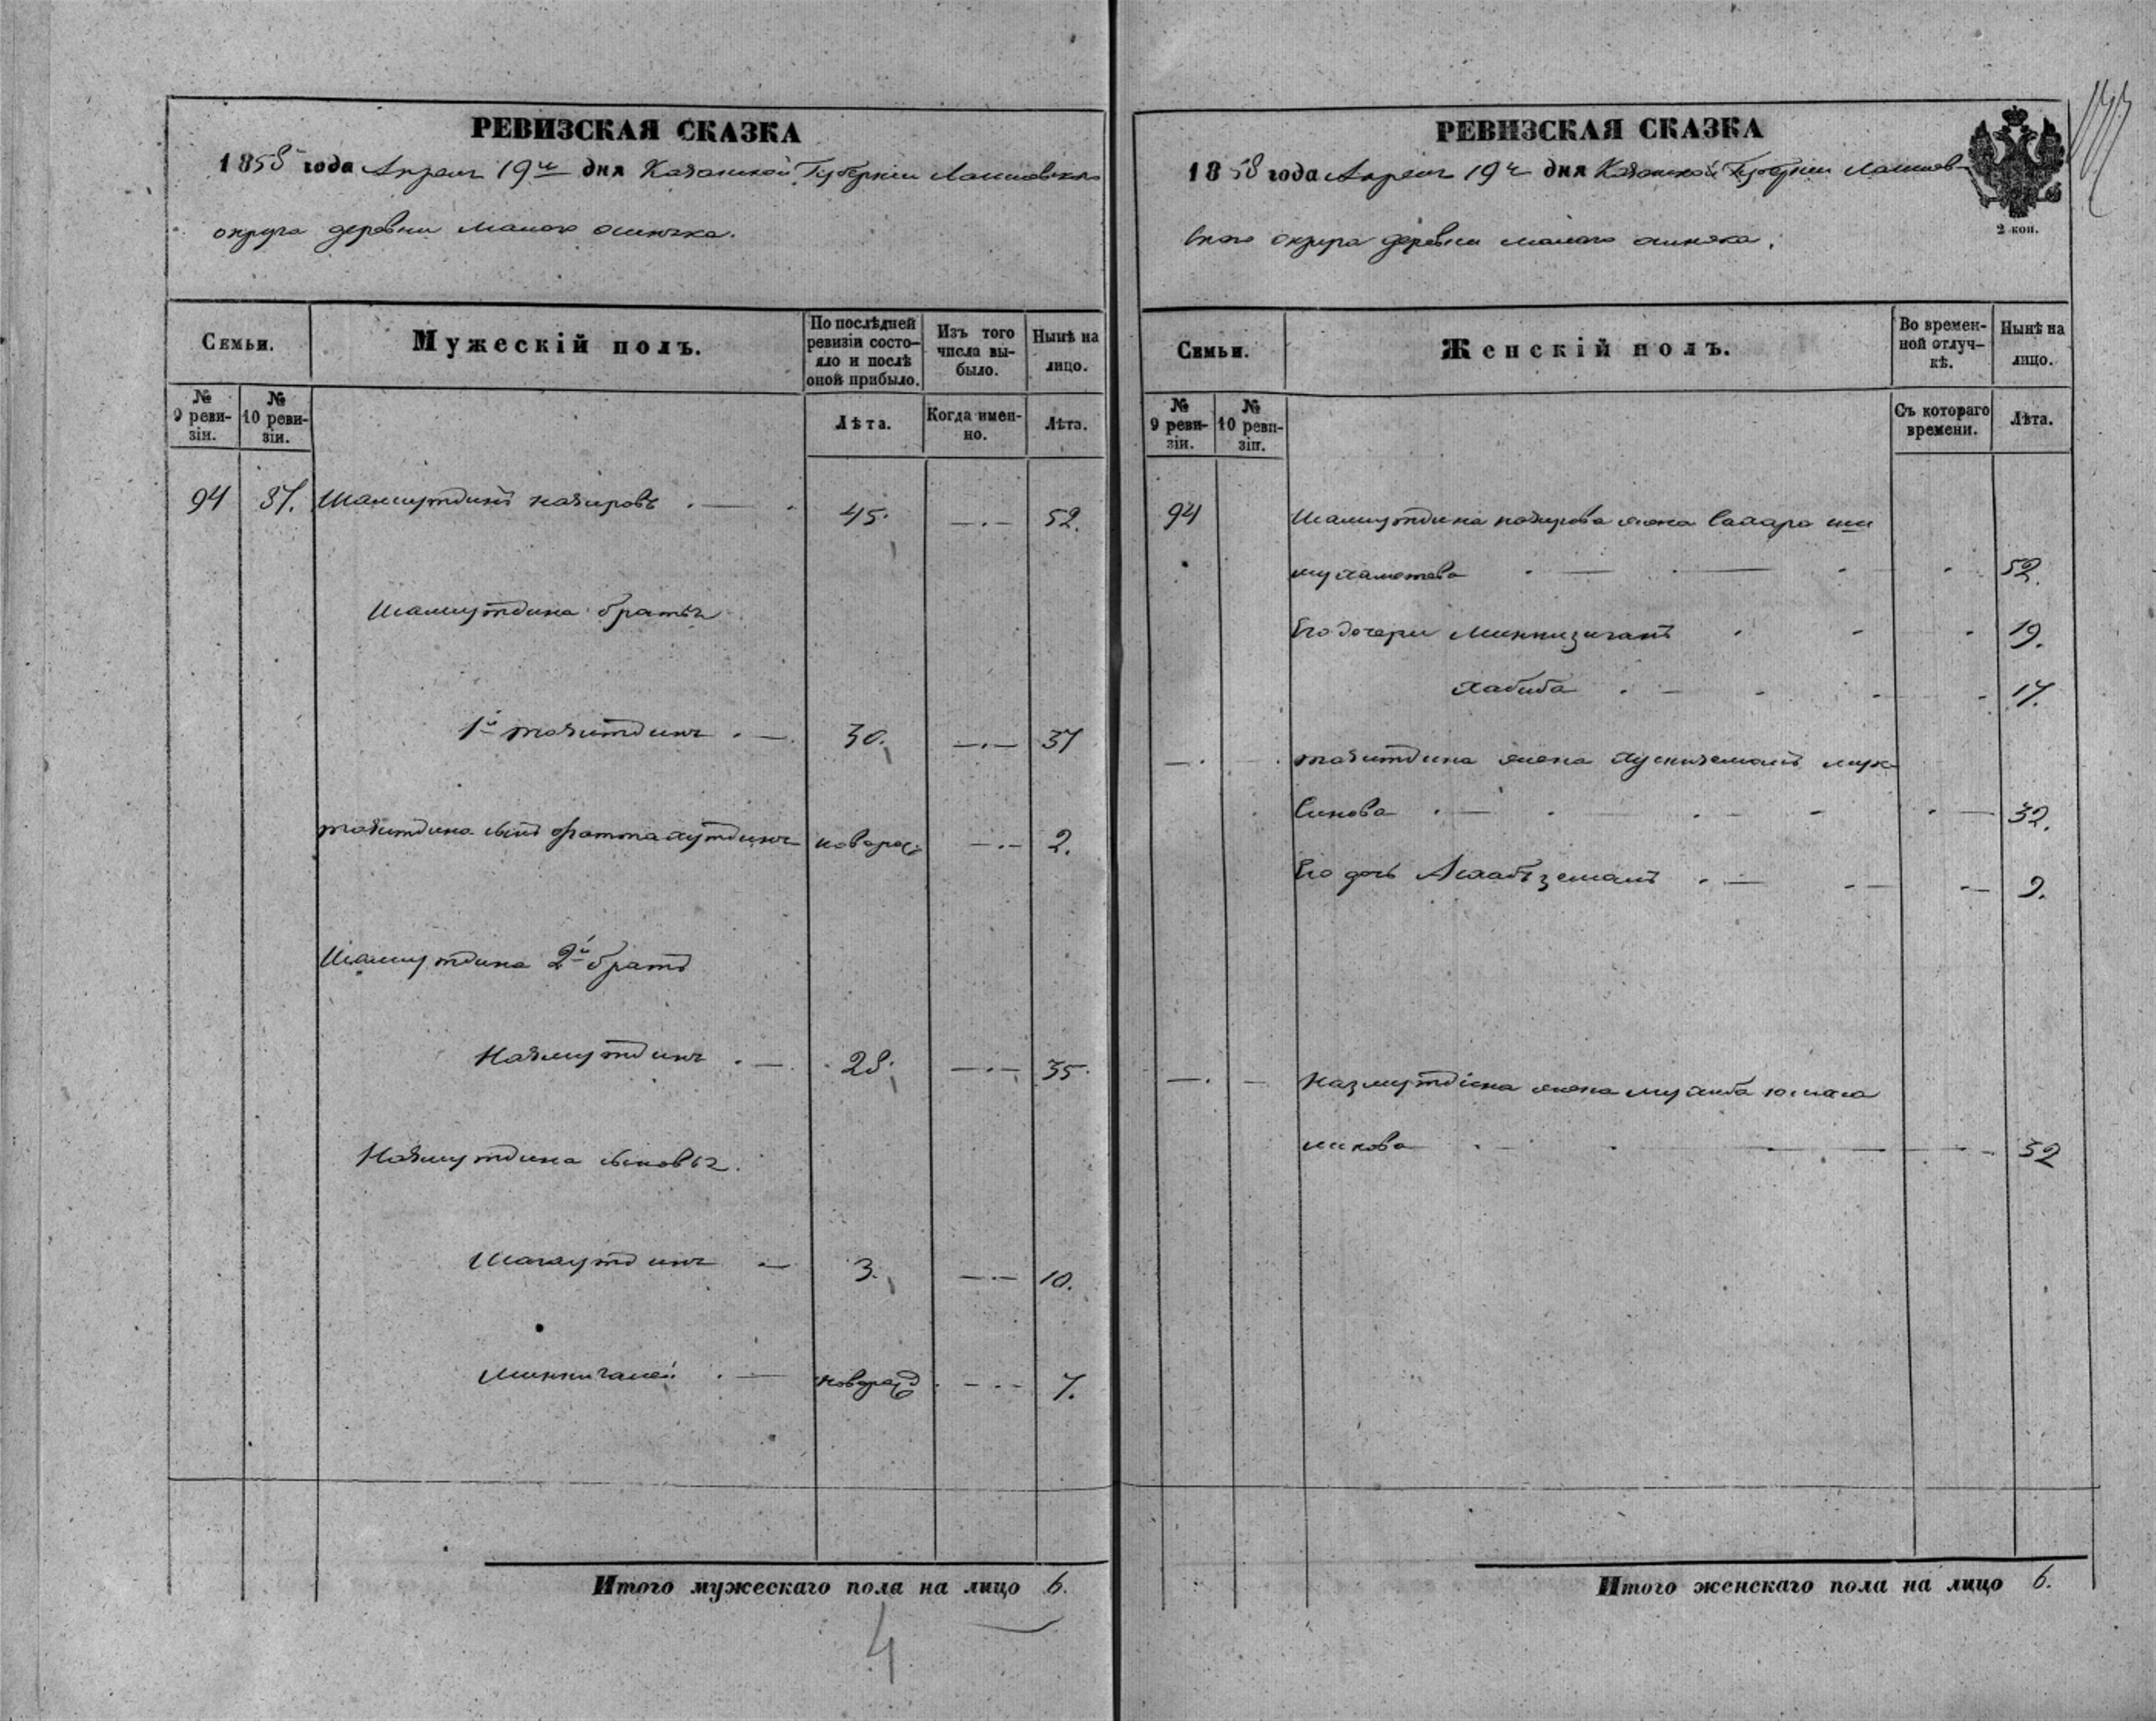 РЕВИЗСКАЯ СКАЗКА
1858 года Апреля 19го дня Казанской Губернии Лаишевскаго
округа деревни малого ошняка.
Семьи.
Мужескій полъ.
По послѣдней ревизіи состояло и послѣ оной прибыло.
Изъ того числа выбыло.
Нынѣ на лицо.
№ 9 ревизіи.
№ 10 ревизіи.
Лѣта.
Когда именно.
Лѣта.
94 87. Шамшутдинъ назировъ 45. 52.
Шамшутдина братья
1й тазитдинъ 30. 37
тазитдина сынъ фаттахутдинъ новорож: 2.
Шамшутдина 2й братъ
Назмутдинъ 28. 35.
Назмутдина сыновья.
Шагаутдинъ 3. 10.
Миннигалей новорожд 7.
Итого мужескаго пола на лицо 6.
4
РЕВИЗСКАЯ СКАЗКА
1858 года Апреля 19го дня Казанской Губернии Лаишев-
скаго округа деревни малого ошняка.
2 коп.
Семьи.
Женскій полъ.
Во временной отлучкѣ.
Нынѣ на лицо.
№ 9 ревизіи.
№ 10 ревизіи.
Съ котораго времени.
Лѣта.
94 Шамшутдина назирова жена сахара иш
мухаметева 52.
Его дочери Миннизиганъ 19.
хабиба 17.
тазитдина жена хусниземанъ мук
синова 32.
Его дочь 9.
Назмутдина жена
52
Итого женскаго пола на лицо 6.